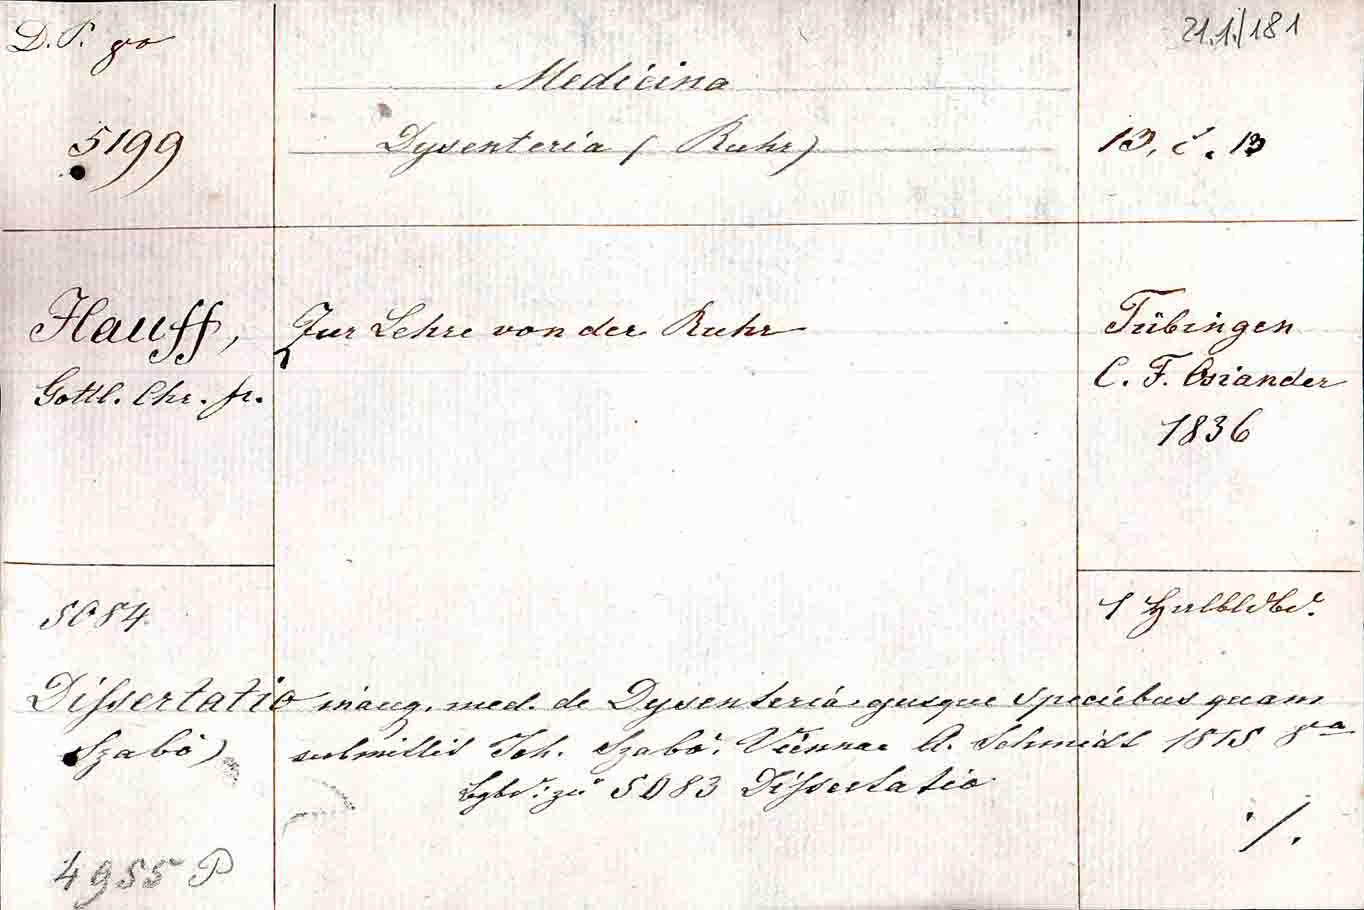 D. P. go
21.1./181
Medicina
5199
Dysenteria (Ruhr)
13. č. 13
Hauff,
Zur Lehre von der Ruhr
Tübingen
Gottl. Chr. fr.
C. F. Osiander
1836
5084
1 Halbldbd.
Dissertatio inaug. med. de Dysenteria ejusque speciebus quam
(Szabó) submittit Joh. Szabó. Viennae A. Schmidt 1815 8va
bgbd. zu 5083 Dissertatio
./.
4955 P